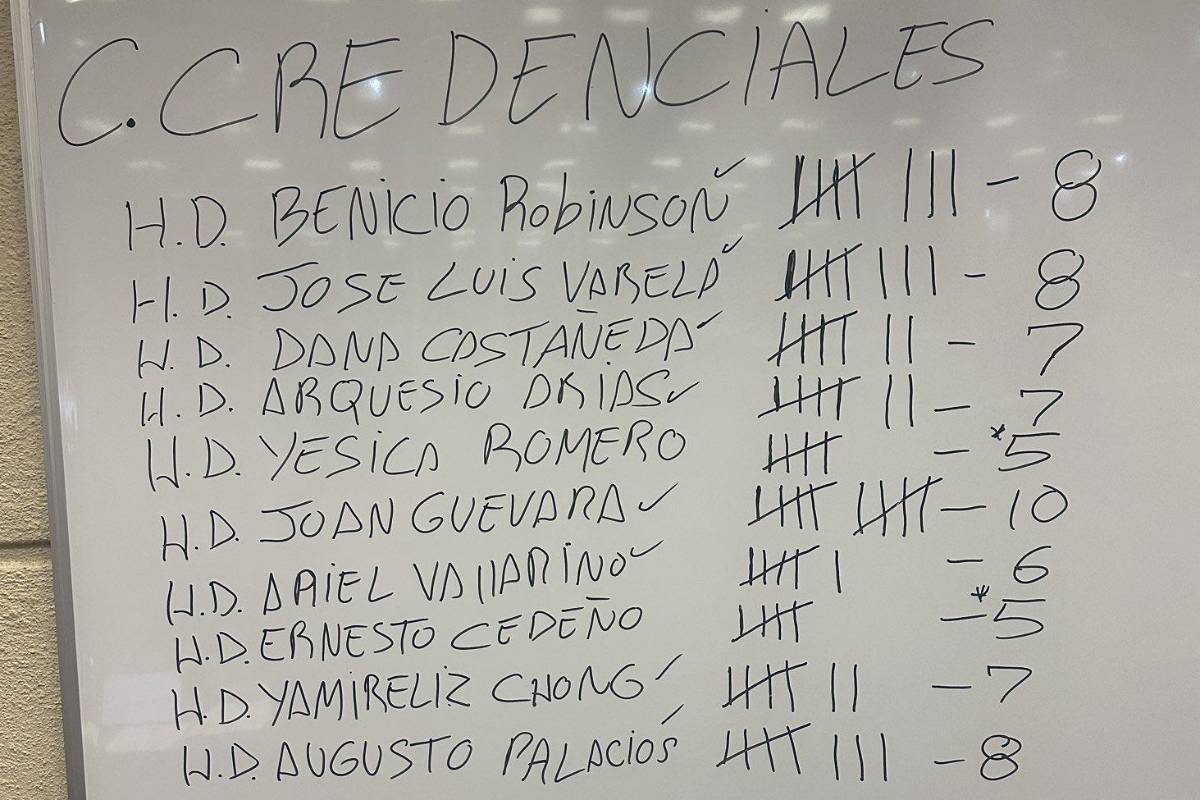 C. CREDENCIALES
H.D. BENICIO RobiNSON ✓ 卌 III - 8
H.D. JOSE LUIS VARELA ✓ 卌 III - 8
H.D. DANA CASTAÑEDA ✓ 卌 II - 7
H.D. ARQUESIO ARIAS ✓ 卌 II - 7
H.D. YESICA ROMERO 卌 - *5
H.D. JOAN GUEVARA ✓ 卌 卌 - 10
H.D. ARIEL VALLARINO ✓ 卌 I - 6
H.D. ERNESTO CEDEÑO 卌 - *5
H.D. YAMIRELIZ CHONG ✓ 卌 II - 7
H.D. AUGUSTO PALACIOS ✓ 卌 III - 8